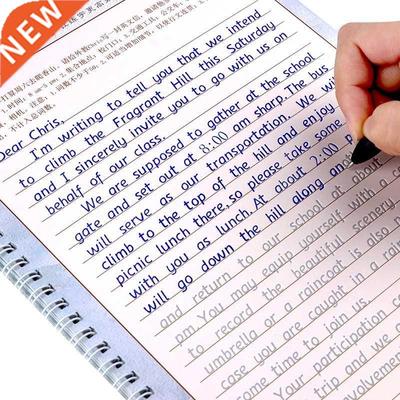 NEW
Dear Chris,
I'm writing to tell you that we intend
to climb the Fragrant Hill this Saturday
and I sincerely invite you to go with us on
behalf of our class.
We are supposed to gather at the school
gate and set out at 8:00 am sharp. The bus
will serve as our transportation. We will
climb to the top of the hill and enjoy
picnic lunch there, so please take some
with you as lunch. At about 2:00 p
will go down the hill along and
and return to our school at about
pm. You may equip yourself with a ca
to record the beautiful scenery
umbrella or a raincoat is also n
case you are caught in a rain
come time to join us.
Your participation
trip and we
involvemen